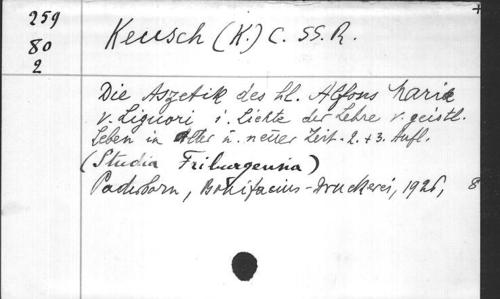 259
80
2
Keusch (K.) C. SS. R.
Die Aszetik des hl. Alfons Maria
v. Liguori i. Lichte der Lehre v. geistl.
Leben in alter u. neuer Zeit. 2. + 3. Aufl.
(Studia Friburgensia)
Paderborn, Bonifacius-Druckerei, 1926, 8